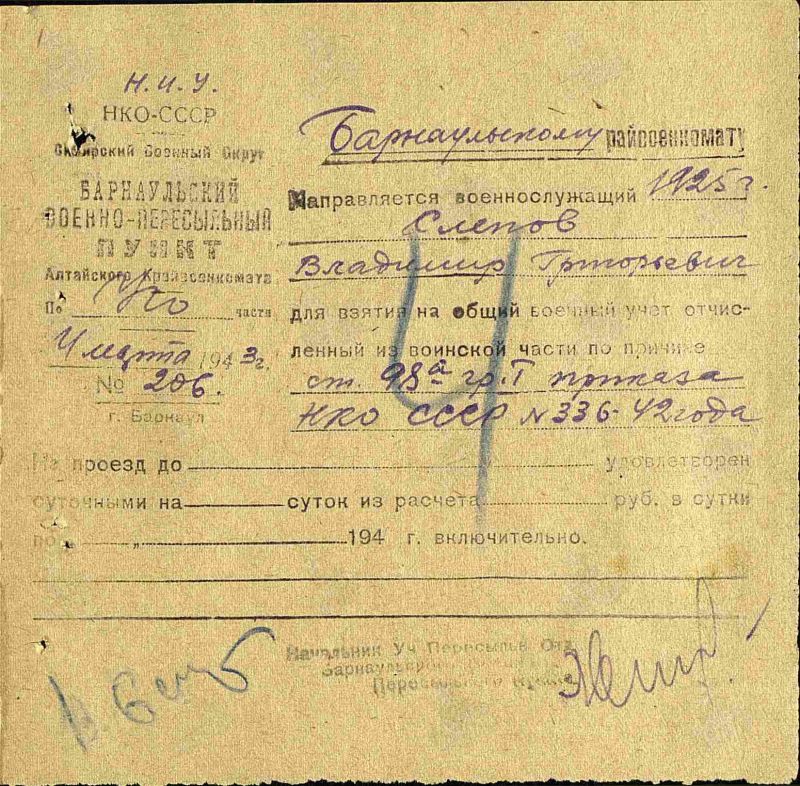 Н.И.У.
НКО-СССР
Сибирский Военный Округ
БАРНАУЛЬСКИЙ
ВОЕННО-ПЕРЕСЫЛЬНЫЙ
ПУНКТ
Алтайского Крайвоенкомата
По части
4 марта 1943 г.
№ 206.
г. Барнаул
Барнаульскому райвоенкомату
Направляется военнослужащий 1925 г.
Слепов
Владимир Григорьевич
для взятия на общий военный учет отчис-
ленный из воинской части по причине
ст. 98а гр. I приказа
НКО СССР №336-42 года
На проезд до удовлетворен
суточными на суток из расчета руб. в сутки
по „ 194 г. включительно.
Начальник Уч Пересыльн Отд
Барнаульского
Пересыльного Пункта